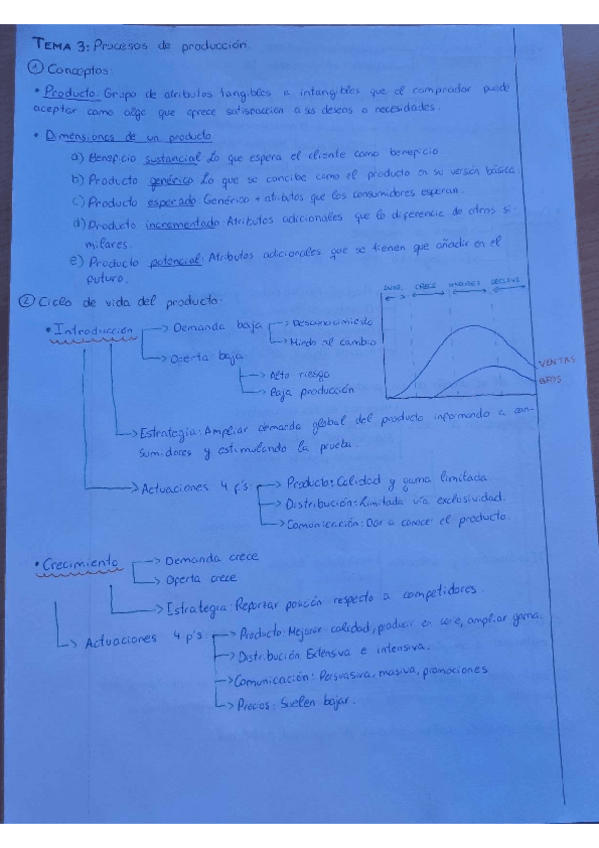 TEMA 3: Procesos de producción.
① Conceptos:
• Producto: Grupo de atributos tangibles e intangibles que el comprador puede
aceptar como algo que ofrece satisfacción a sus deseos o necesidades.
• Dimensiones de un producto
a) Beneficio sustancial: Lo que espera el cliente como beneficio
b) Producto genérico: Lo que se concibe como el producto en su versión básica
c) Producto esperado: Genérico + atributos que los consumidores esperan.
d) Producto incrementado: Atributos adicionales que lo diferencie de otros si-
milares.
e) Producto potencial: Atributos adicionales que se tienen que añadir en el
futuro.
② Ciclo de vida del producto:
INTRO. CREC. MADUREZ DECLIVE
• Introducción → Demanda baja → Desconocimiento
→ Miedo al cambio
→ Oferta baja
→ Alto riesgo
→ Baja producción
VENTAS
BFOS
→ Estrategia: Ampliar demanda global del producto informando a con-
sumidores y estimulando la prueba.
→ Actuaciones 4 p's: → Producto: Calidad y gama limitada.
→ Distribución: Limitada vía exclusividad.
→ Comunicación: Dar a conocer el producto.
• Crecimiento → Demanda crece
→ Oferta crece
→ Estrategia: Reportar posición respecto a competidores.
→ Actuaciones 4 p's: → Producto: Mejorar calidad, producir en serie, ampliar gama.
→ Distribución: Extensiva e intensiva.
→ Comunicación: Persuasiva, masiva, promociones
→ Precios: Suelen bajar.